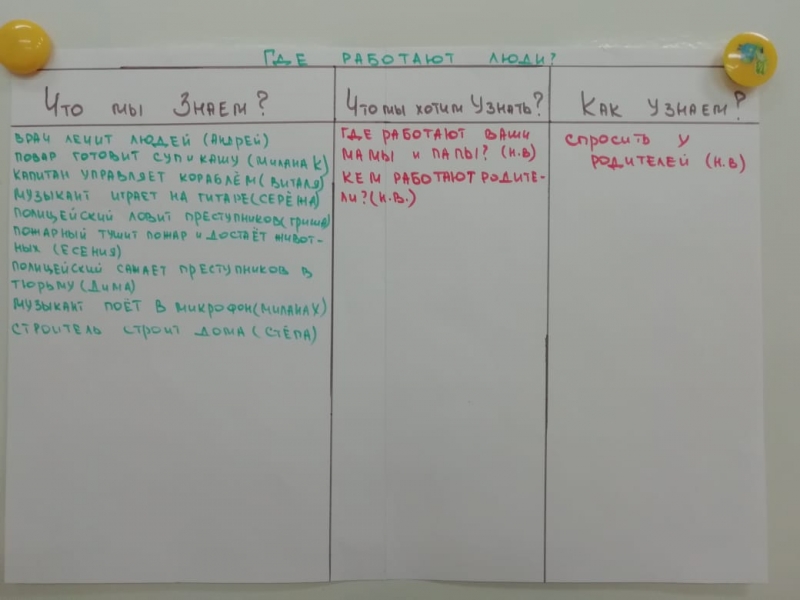 ГДЕ РАБОТАЮТ ЛЮДИ?
ЧТО МЫ ЗНАЕМ?
ВРАЧ ЛЕЧИТ ЛЮДЕЙ (АНДРЕЙ)
ПОВАР ГОТОВИТ СУП И КАШУ (МИЛАНА К)
КАПИТАН УПРАВЛЯЕТ КОРАБЛЁМ (ВИТАЛЯ)
МУЗЫКАНТ ИГРАЕТ НА ГИТАРЕ (СЕРЁЖА)
ПОЛИЦЕЙСКИЙ ЛОВИТ ПРЕСТУПНИКОВ (ГРИША)
ПОЖАРНЫЙ ТУШИТ ПОЖАР И ДОСТАЁТ ЖИВОТ-
НЫХ (ЕСЕНИЯ)
ПОЛИЦЕЙСКИЙ САЖАЕТ ПРЕСТУПНИКОВ В
ТЮРЬМУ (ДИМА)
МУЗЫКАНТ ПОЁТ В МИКРОФОН (МИЛАНА Х)
СТРОИТЕЛЬ СТРОИТ ДОМА (СТЁПА)
ЧТО МЫ ХОТИМ УЗНАТЬ?
ГДЕ РАБОТАЮТ ВАШИ
МАМЫ И ПАПЫ? (Н.В)
КЕМ РАБОТАЮТ РОДИТЕ-
ЛИ? (Н.В.)
КАК УЗНАЕМ?
СПРОСИТЬ У
РОДИТЕЛЕЙ (Н.В)